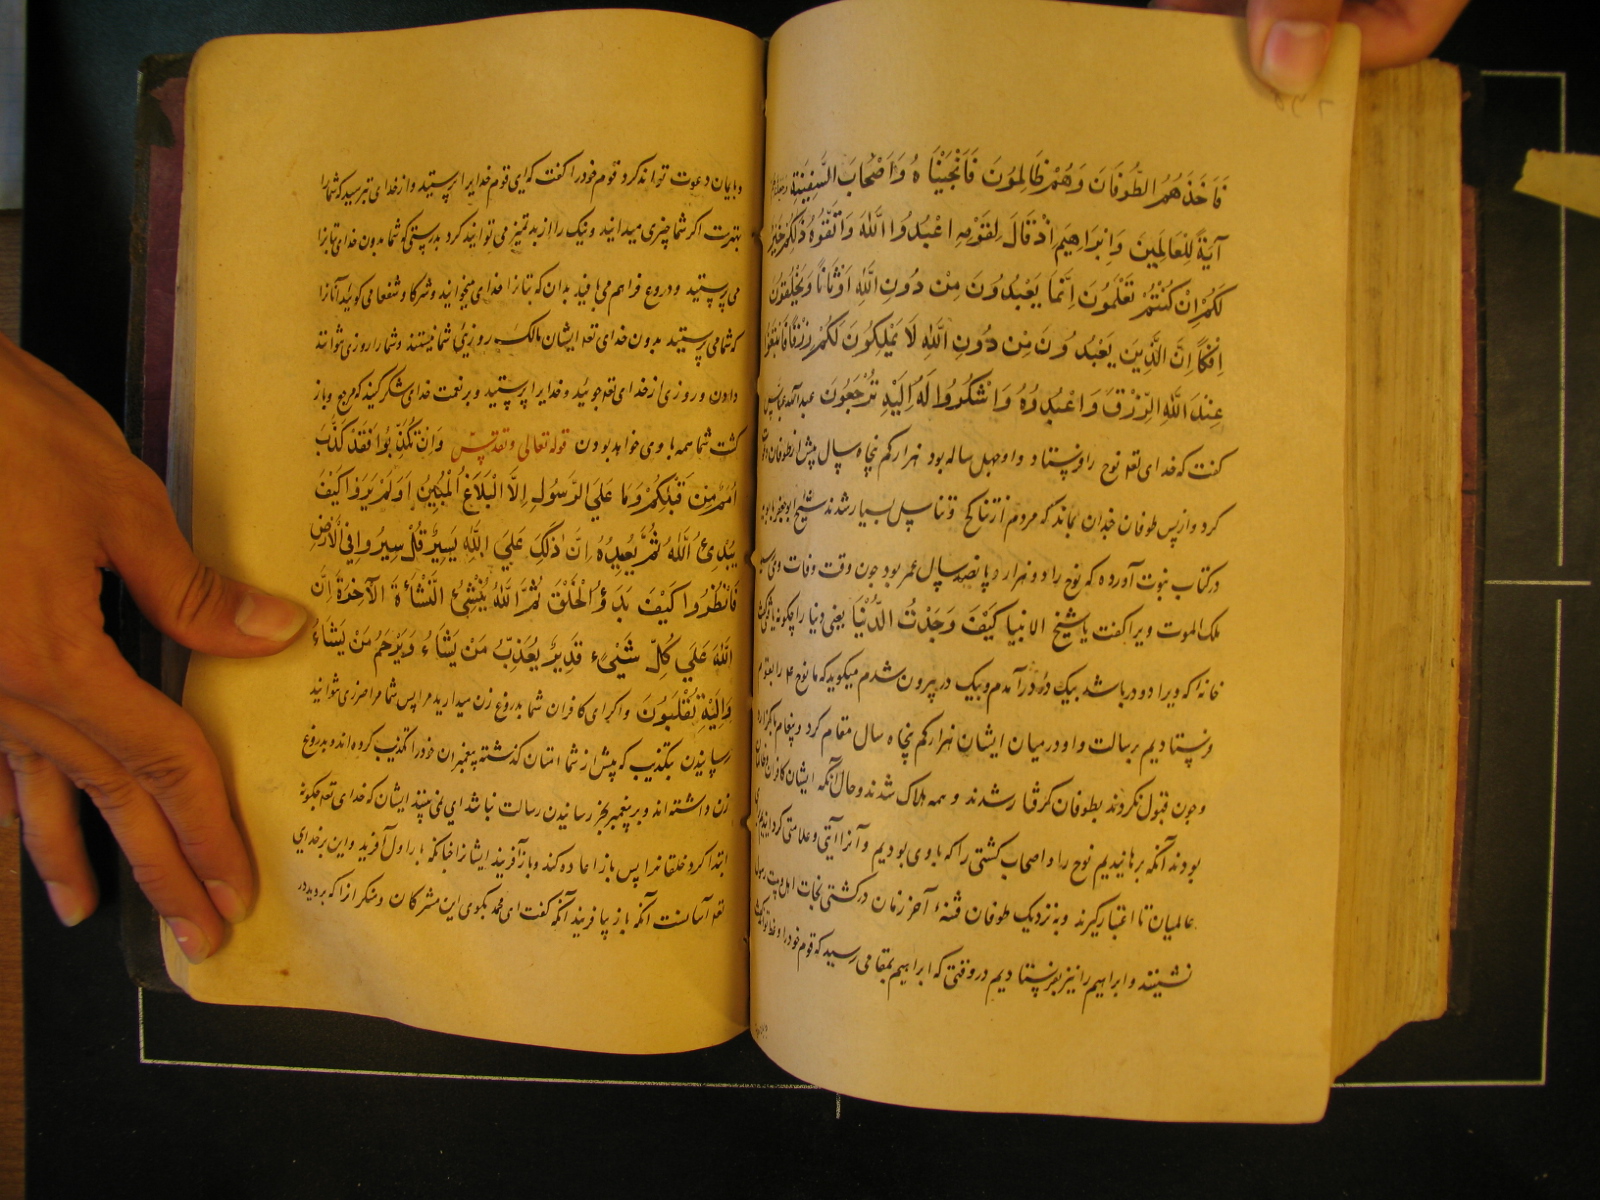 فَاَخَذَهُمُ الطُّوفَانَ وَهُمْ ظَالِمُونَ فَاَنْجَيْنَا هُ وَاَصْحَابَ السَّفِينَةِ
آيَةً لِلْعَالَمِينَ وَاِبْرَاهِيمَ اِذْ قَالَ لِقَوْمِهِ اعْبُدُوا اللَّهَ وَاتَّقُوهُ ذٰلِكُمْ خَيْرٌ
لَكُمْ اِنْ كُنْتُمْ تَعْلَمُونَ اِنَّمَا يَعْبُدُونَ مِنْ دُونِ اللَّهِ اَوْثَانًا وَيَخْلُقُونَ
اِفْكًا اِنَّ الَّذِينَ يَعْبُدُونَ مِن دُونِ اللَّهِ لَا يَمْلِكُونَ لَكُمْ رِزْقًا فَابْتَغُوا
عِنْدَ اللَّهِ الرِّزْقَ وَاعْبُدُوهُ وَاشْكُرُوا لَهُ اِلَيْهِ تُرْجَعُونَ عبدالله عباس
كفت كه خداى تعه نوح را وفرستاد و او چهل ساله بود هزار كم پنجاه سال پيش از طوفان
كرد و از پس طوفان چندان بماند كه مردم از تناكح و تناسل بسيار شدند شيخ ابو جعفر
در كتاب نبوت آورده كه نوح را دو هزار و پانصد سال عمر بود چون وقت وفات وى
ملك الموت ويرا كفت يا شيخ الانبيا كَيْفَ وَجَدْتَ الدُّنْيَا يعنى دنيا را چكونه يافتى
خانه‌اكه ويرا دو در باشد بيك در درآمدم و بيك در بيرون شدم ميكويد كه ما نوح را بقوم
وفرستاديم برسالت و او در ميان ايشان هزار كم پنجاه سال مقام كرد و پيغام
و چون قبول نكردند بطوفان كرفتار شدند و همه هلاك شدند و حال آنكه ايشان كافران
بودند آنكه برهانيديم نوح را و اصحاب كشتى را كه با وى بوديم و آنرا آيتى و علامتى كردانيديم
عالميان تا اعتبار كيرند و به نزديك طوفان فتنهٔ آخر زمان در كشتى نجات اهل بيت رسول
نشينند و ابراهيم را نيز بفرستاديم در وقتى كه ابراهيم بمقامى رسيد كه قوم خود را وعظ
و بايمان دعوت تواند كرد قوم خود را كفت كه اى قوم خدايرا پرستيد و از خداى بترسيد كه شما را
بهترست اكر شما چيزى ميدانيد و نيك را از بد تميز مى توانيد كرد بدرستى كه شما بدون خداى بتانرا
مى پرستيد و دروغ فراهم مى بافيد بدان كه بتانرا خداى ميخوانيد و شركا و شفعا مى كوئيد آنانرا
كه شما مى پرستيد بدون خداى تعه ايشان مالك روزئ شما نيستند و شما را روزى نتوانند
دادن و روزى از خداى تعه جوئيد و خدايرا پرستيد و بر نعمت خداى شكر كنيد كه مرجع و باز
كشت شما همه با وى خواهد بودن قوله تعالى و تقدس وَاِنْ تُكَذِّبُوا فَقَدْ كَذَّبَ
اُمَمٌ مِنَ قَبْلِكُمْ وَمَا عَلَى الرَّسُولِ اِلَّا الْبَلَاغُ الْمُبِينُ اَوَلَمْ يَرَوْا كَيْفَ
يُبْدِئُ اللَّهُ ثُمَّ يُعِيدُهُ اِنَّ ذٰلِكَ عَلَي اللَّهِ يَسِيرٌ قُلْ سِيرُوا فِي الْاَرْضِ
فَانْظُرُوا كَيْفَ بَدَؤُ الْخَلْقَ ثُمَّ اللَّهُ يُنْشِئُ النَّشْاَةَ الْآخِرَةَ اِنَّ
اللَّهَ عَلَي كُلِّ شَيْءٍ قَدِيرٌ يُعَذِّبُ مَنْ يَشَاءُ وَيَرْحَمُ مَنْ يَشَاءُ
وَاِلَيْهِ تُقْلَبُونَ و اكر اى كافران شما بدروغ زن ميداريد مرا پس شما مرا ضررى نتوانيد
رسانيدن بتكذيب كه پيش از شما امتان كذشته پيغمبران خود را تكذيب كرده‌اند و بدروغ
زن داشته اند و بر پيغمبر بجز رسانيدن رسالت نباشد اى نمى بينند ايشان كه خداى تعه چكونه
ابتدا كرد خلقانرا پس باز اعاده كند و باز آفريند ايشانرا چنانكه بار اول آفريد و اين بر خداى
تعه آسانست آنكه باز بيافريند آنكه كفت اى محمد بكوى اين مشركان و منكرانرا كه برويد در